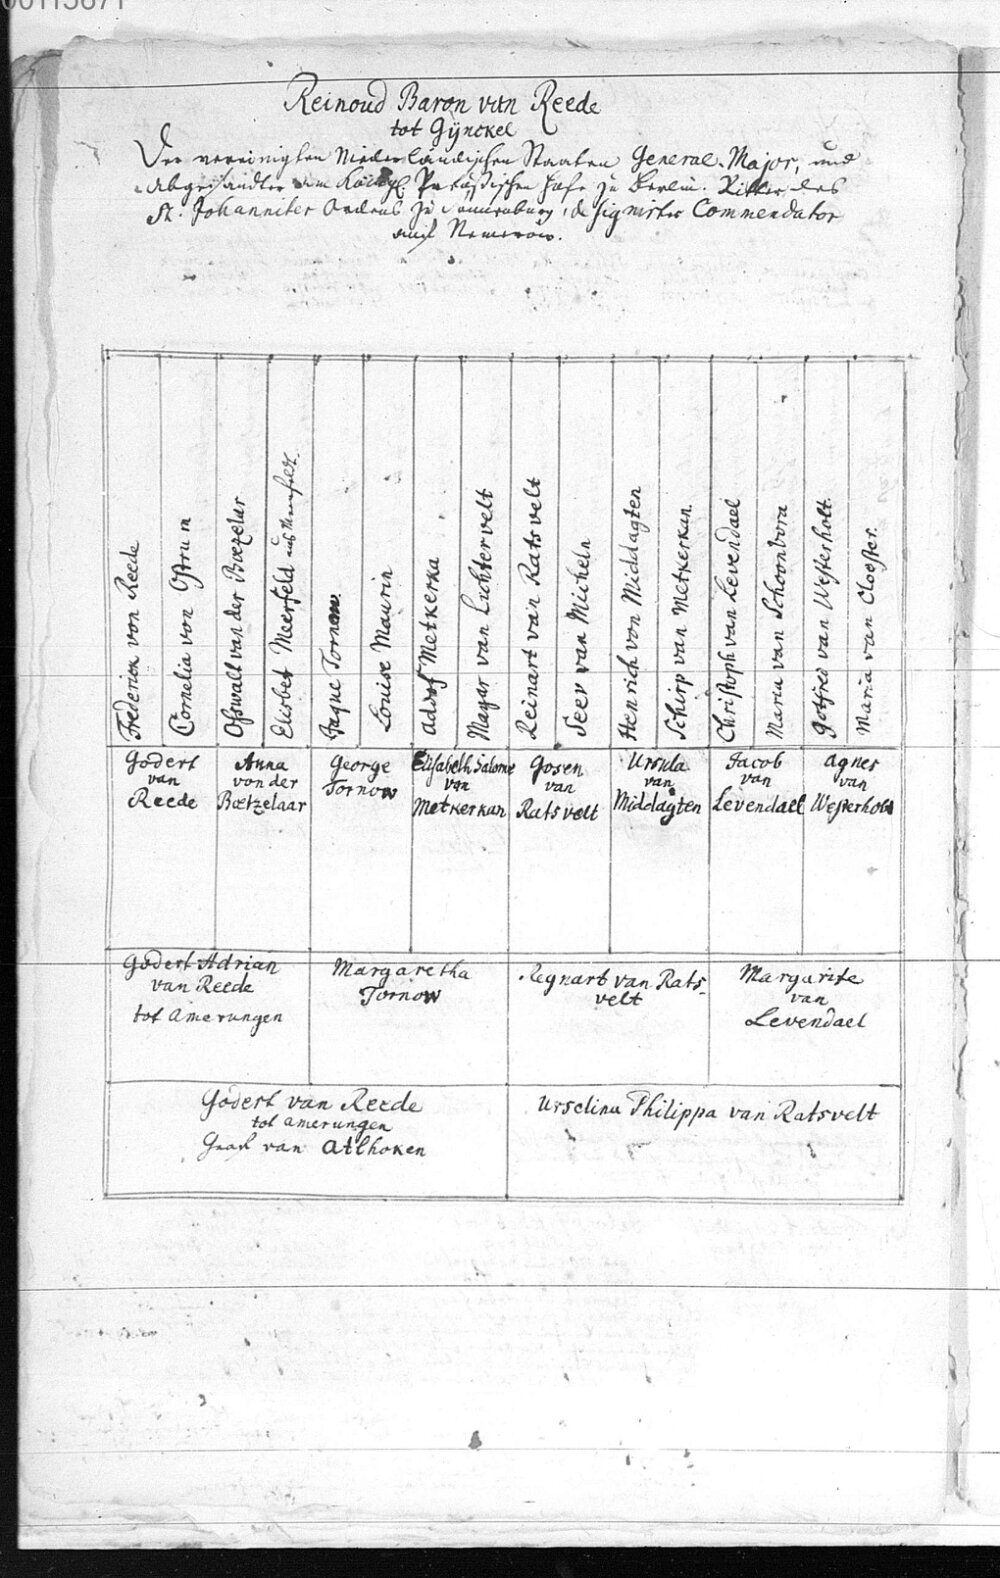 00113671
Reinoud Baron van Reede
tot Gÿnckel
Der vereinigten Niederländischen Staaten General-Major, und
Abgesandter am Königl. Preussischen Hofe zu Berlin. Ritter des
St. Johanniter Ordens zu Sonnenburg, designirter Commendator
auf Nemerow.
Frederick von Reede
Cornelia von Ostrum
Osswalt van der Boezelar
Elisbet Meerfeld aus
Jaque Tornow.
Louise Maurin
Adolf Metkerka
Magar van Luchtervelt
Reinart van Ratsvelt
Seer van Micheln
Henrich von Middagten
Schirp van Metkerkan.
Christoph van Levendael
Maria van Schoonvora
Gotfred van Westerholt.
Maria van Cloester.
Godert
van
Reede
Anna
von der
Boetzelaar
George
Tornow
Elisabeth Salome
van
Metkerkan
Gosen
van
Ratsvelt
Ursula
van
Middagten
Jacob
van
Levendael
Agnes
van
Westerholt
Godert Adrian
van Reede
tot Amerungen
Margaretha
Tornow
Regnart van Rats-
velt
Margarite
van
Levendael
Godert van Reede
tot Amerungen
Graf van Athloken
Urselina Philippa van Ratsvelt